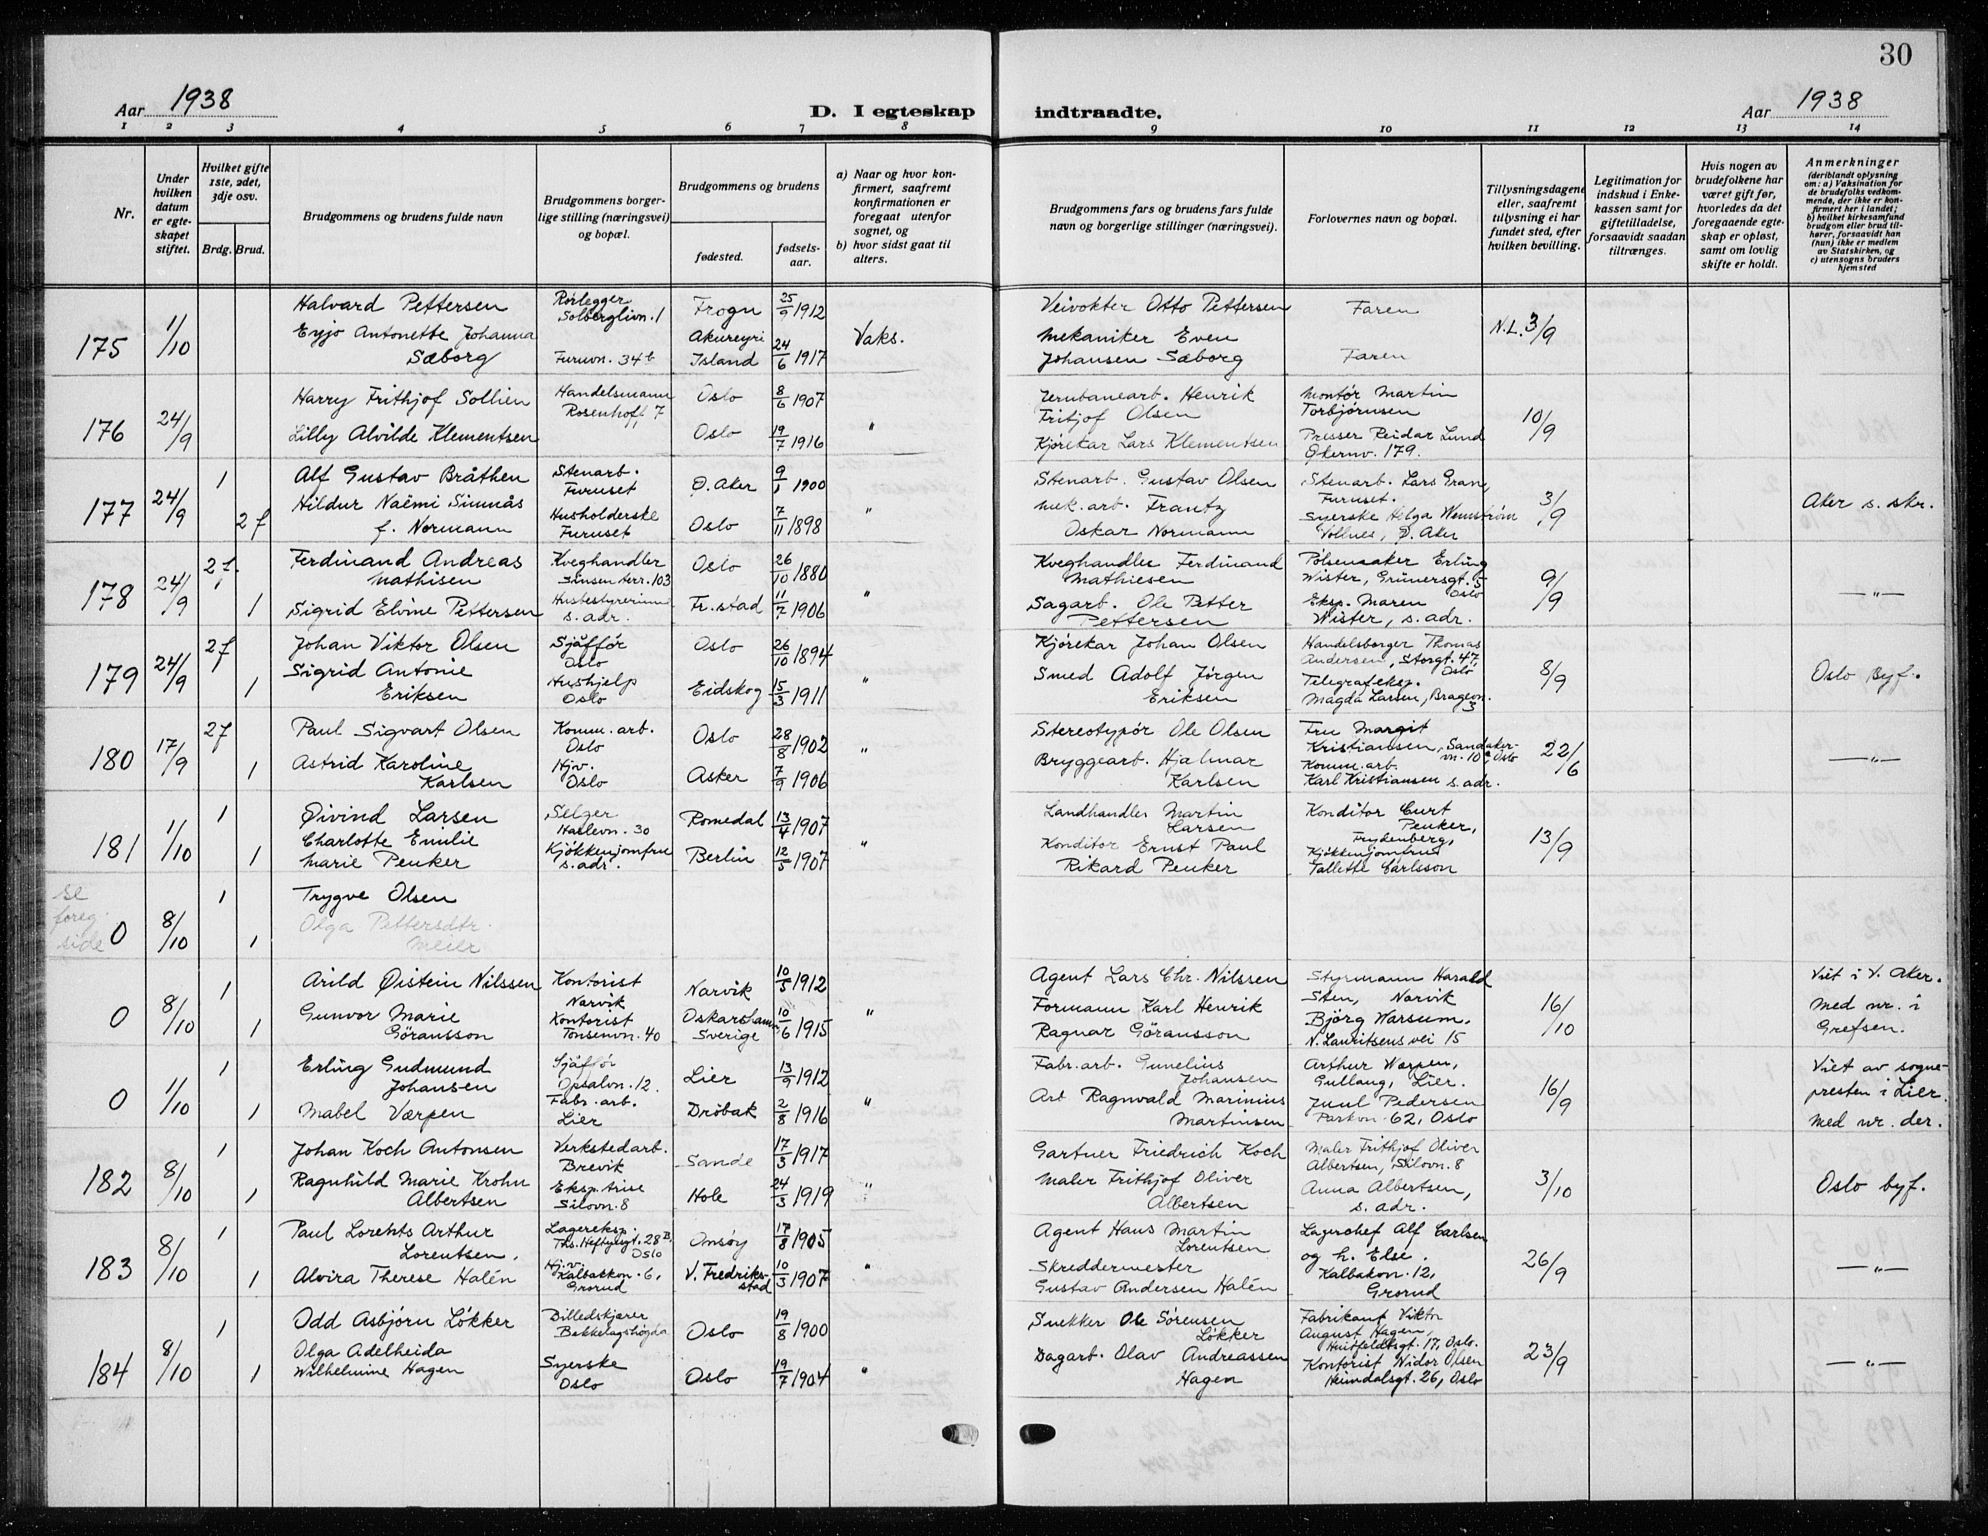 30
Aar 1938
D. I egteskap indtraadte.
Aar 1938
1 2 3 4 5 6 7 8 9 10 11 12 13 14
Nr.
Under hvilken datum er egteskapet stiftet.
Hvilket gifte 1ste, 2det, 3dje osv.
Brdg. Brud.
Brudgommens og brudens fulde navn
Brudgommens borgerlige stilling (næringsvei) og bopæl.
Brudgommens og brudens
fødested.
fødselsaar.
a) Naar og hvor konfirmert, saafremt konfirmationen er foregaat utenfor sognet, og
b) hvor sidst gaat til alters.
Brudgommens fars og brudens fars fulde navn og borgerlige stillinger (næringsvei).
Forlovernes navn og bopæl.
Tillysningsdagene eller, saafremt tillysning ei har fundet sted, efter hvilken bevilling.
Legitimation for indskud i Enkekassen samt for giftetilladelse, forsaavidt saadan tiltrænges.
Hvis nogen av brudefolkene har været gift før, hvorledes da det foregaaende egteskap er opløst, samt om lovlig skifte er holdt.
Anmerkninger (deriblandt oplysning om: a) Vaksination for de brudefolks vedkommende, der ikke er konfirmert her i landet; b) hvilket kirkesamfund brudgom eller brud tilhører, forsaavidt han (hun) ikke er medlem av Statskirken, og c) utensogns bruders hjemsted
175 1/10 Halvard Pettersen Rørlegger Solberglivn. 1 Frogn 25/9 1912 Veivokter Otto Pettersen Faren N.L. 3/9
Eyjo Antonette Johanna Sæborg Furuvn. 34b Akureyri Island 24/6 1917 Vaks. Mekaniker Even Johansen Sæborg Faren
176 24/9 Harry Frithjof Sollien Handelsmann Rosenhoff 7 Oslo 8/6 1907 Jernbanearb. Henrik Fritjof Olsen Montør Martin Torbjørnsen 10/9
Lilly Alvilde Klementsen Oslo 19/7 1916 " Kjørekar Lars Klementsen Presser Reidar Lund Økernv. 179.
177 24/9 1 Alf Gustav Bråthen Stenarb. Furuset Ø. Aker 9/1 1900 Stenarb. Gustav Olsen Stenarb. Lars Gran, Furuset. 3/9 Aker s. skr.
2 f Hildur Naëmi Simnås f. Normann Husholderske Furuset Oslo 7/11 1898 " Mek. arb. Frantz Oskar Normann Syerske Helga Wennstrøm Vollnes, Ø. Aker
178 24/9 2 f. Ferdinand Andreas Mathisen Kveghandler Sinsen terr. 103 Oslo 26/10 1880 Kveghandler Ferdinand Mathiesen Pølsemaker Erling Wister, Grünersgt. 5 Oslo 9/9 —"—
1 Sigrid Elvine Pettersen Husbestyrerinne s. adr. Fr.stad 11/7 1906 " Sagarb. Ole Petter Pettersen Eksp. Maren Wister, s. adr.
179 24/9 2 f Johan Viktor Olsen Sjåffør Oslo Oslo 26/10 1894 Kjørekar Johan Olsen Handelsborger Thomas Andersen, Storgt. 47, Oslo 8/9 Oslo Byf.
1 Sigrid Antonie Eriksen Hushjelp Oslo Eidskog 15/3 1911 " Smed Adolf Jørgen Eriksen Telegrafeksp. Magda Larsen, Bragevn. 3
180 17/9 2 f Paul Sigvart Olsen Komm. arb. Oslo Oslo 28/8 1902 Stereotypør Ole Olsen Fru Margit Kristiansen, Sandakervn. 10c Oslo 22/6 —"—
1 Astrid Karoline Karlsen Hjv. Oslo Asker 7/9 1906 " Bryggearb. Hjalmar Karlsen Komm. arb. Karl Kristiansen s. adr.
181 1/10 1 Øivind Larsen Selger Haslevn. 30 Romedal 13/4 1907 Landhandler Martin Larsen Konditor Curt Peuker, Frydenberg, 13/9
1 Charlotte Emilie Marie Peuker Kjøkkenjomfru s. adr. Berlin 12/5 1907 " Konditor Ernst Paul Rikard Peuker Kjøkkenjomfru Tallette Carlsson
se foreg. side 0 8/10 1 Trygve Olsen
1 Olga Pettersdtr. Meier
0 8/10 1 Arild Øistein Nilssen Kontorist Narvik Narvik 10/5 1912 Agent Lars Chr. Nilssen Styrmann Harald Sten, Narvik 16/10 Viet i V. Aker. Med nr. i Grefsen.
1 Gunvor Marie Göransson Kontorist Tonsenvn. 40 Oskarshamn Sverige 10/6 1915 " Formann Karl Henrik Ragnar Göransson Bjørg Warsum, N. Lauritsens vei 15
0 1/10 1 Erling Gudmund Johansen Sjåffør Opsalvn. 12. Lier 13/9 1912 Fabr. arb. Gunelius Johansen Arthur Værpen, Gullaug, Lier. 16/9 Viet av sognepresten i Lier. Med nr. der.
1 Mabel Værpen Fabr. arb. Lier Drøbak 2/8 1916 " Arb Ragnvald Marinius Martinsen Juul Pedersen Parkvn. 62, Oslo
182 8/10 1 Johan Koch Antonsen Verkstedarb. Brevik Sande 17/3 1917 Gartner Friedrich Koch Maler Frithjof Oliver Albertsen, Silovn. 8 3/10 Oslo byf.
1 Ragnhild Marie Krohn Albertsen Eksp.trise Silovn. 8 Hole 24/3 1919 " Maler Frithjof Oliver Albertsen Anna Albertsen, s. adr.
183 8/10 1 Paul Lorents Arthur Lorentsen, Lagereksp. Ths. Heftyesgt. 28 B, Oslo Onsøy 17/8 1905 Agent Hans Martin Lorentsen Lagerchef Alf Carlsen og h. Else. 26/9 —"—
1 Alvira Therese Halén Hj.v. Kalbakkvn. 6, Grorud V. Fredriksstad 10/3 1907 " Skreddermester Gustav Andersen Halén Kalbakvn. 12, Grorud
184 8/10 1 Odd Asbjørn Løkker Billedskjærer Bekkelagshøgda Oslo 19/8 1900 Snekker Ole Sørensen Løkker Fabrikant Viktor August Hagen, Huitfeldtsgt. 17, Oslo. 23/9 —"—
1 Olga Adelheida Wilhelmine Hagen Syerske Oslo Oslo 19/7 1904 " Dagarb. Olav Andreassen Hagen Kontorist Widor Olsen Heimdalsgt. 26, Oslo